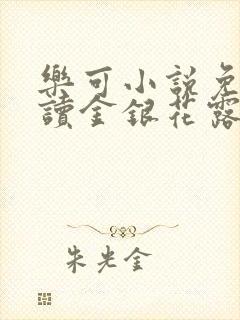 樂可小說免
讀金銀花露
朱光金